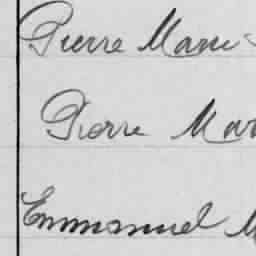 Pierre Marie
Pierre Mar
Emmanuel M